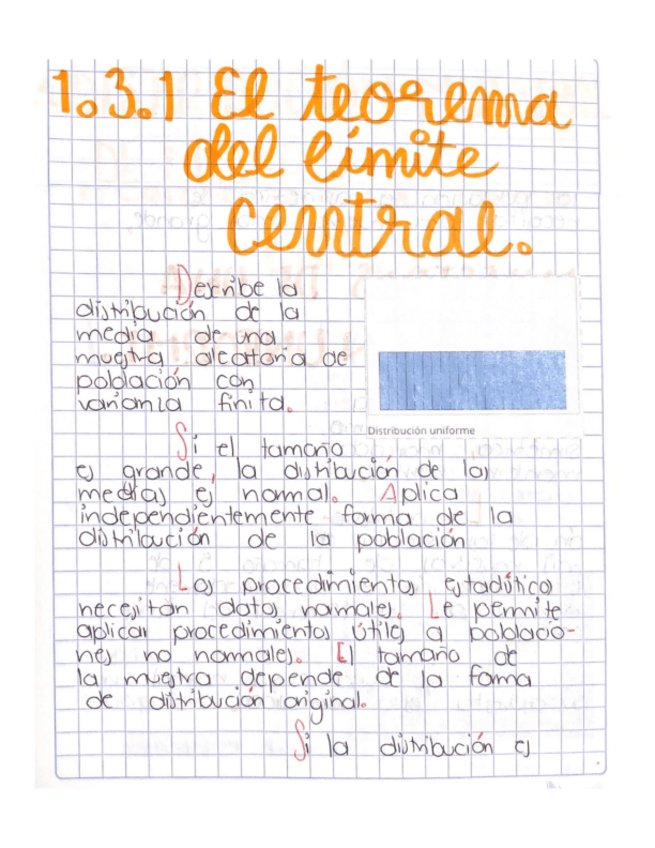 1.3.1 El teorema
del límite
central.
Describe la
distribución de la
media de una
muestra aleatoria de
población con
varianza finita.
Distribución uniforme
Si el tamaño
es grande, la distribución de las
medias es normal. Aplica
independientemente forma de la
distribución de la población
Los procedimientos estadísticos
necesitan datos normales. Le permite
aplicar procedimientos útiles a poblacio-
nes no normales. El tamaño de
la muestra depende de la forma
de distribución original.
Si la distribución es